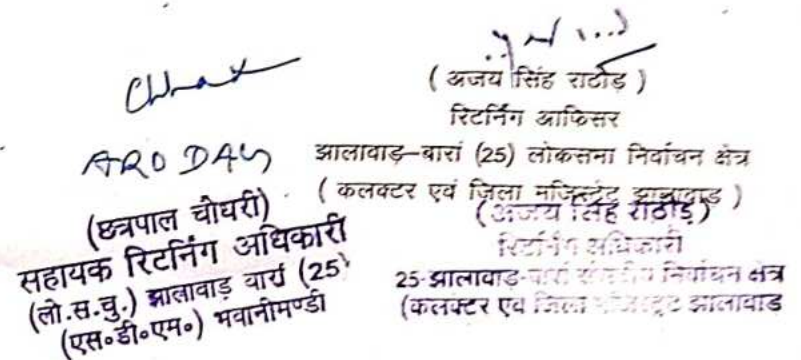 ARO DAG
(छत्रपाल चौधरी)
सहायक रिटर्निंग अधिकारी
(लो.स.चु.) झालावाड़ बारां (25)
(एस०डी०एम०) भवानीमण्डी
( अजय सिंह राठौड़ )
रिटर्निंग आफिसर
झालावाड़–बारां (25) लोकसभा निर्वाचन क्षेत्र
( कलक्टर एवं जिला मजिस्ट्रेट झालावाड़ )
(अजय सिंह राठौड़)
रिटर्निंग अधिकारी
25-झालावाड़-बारां निर्वाचन क्षेत्र
(कलक्टर एवं जिला मजिस्ट्रेट झालावाड़